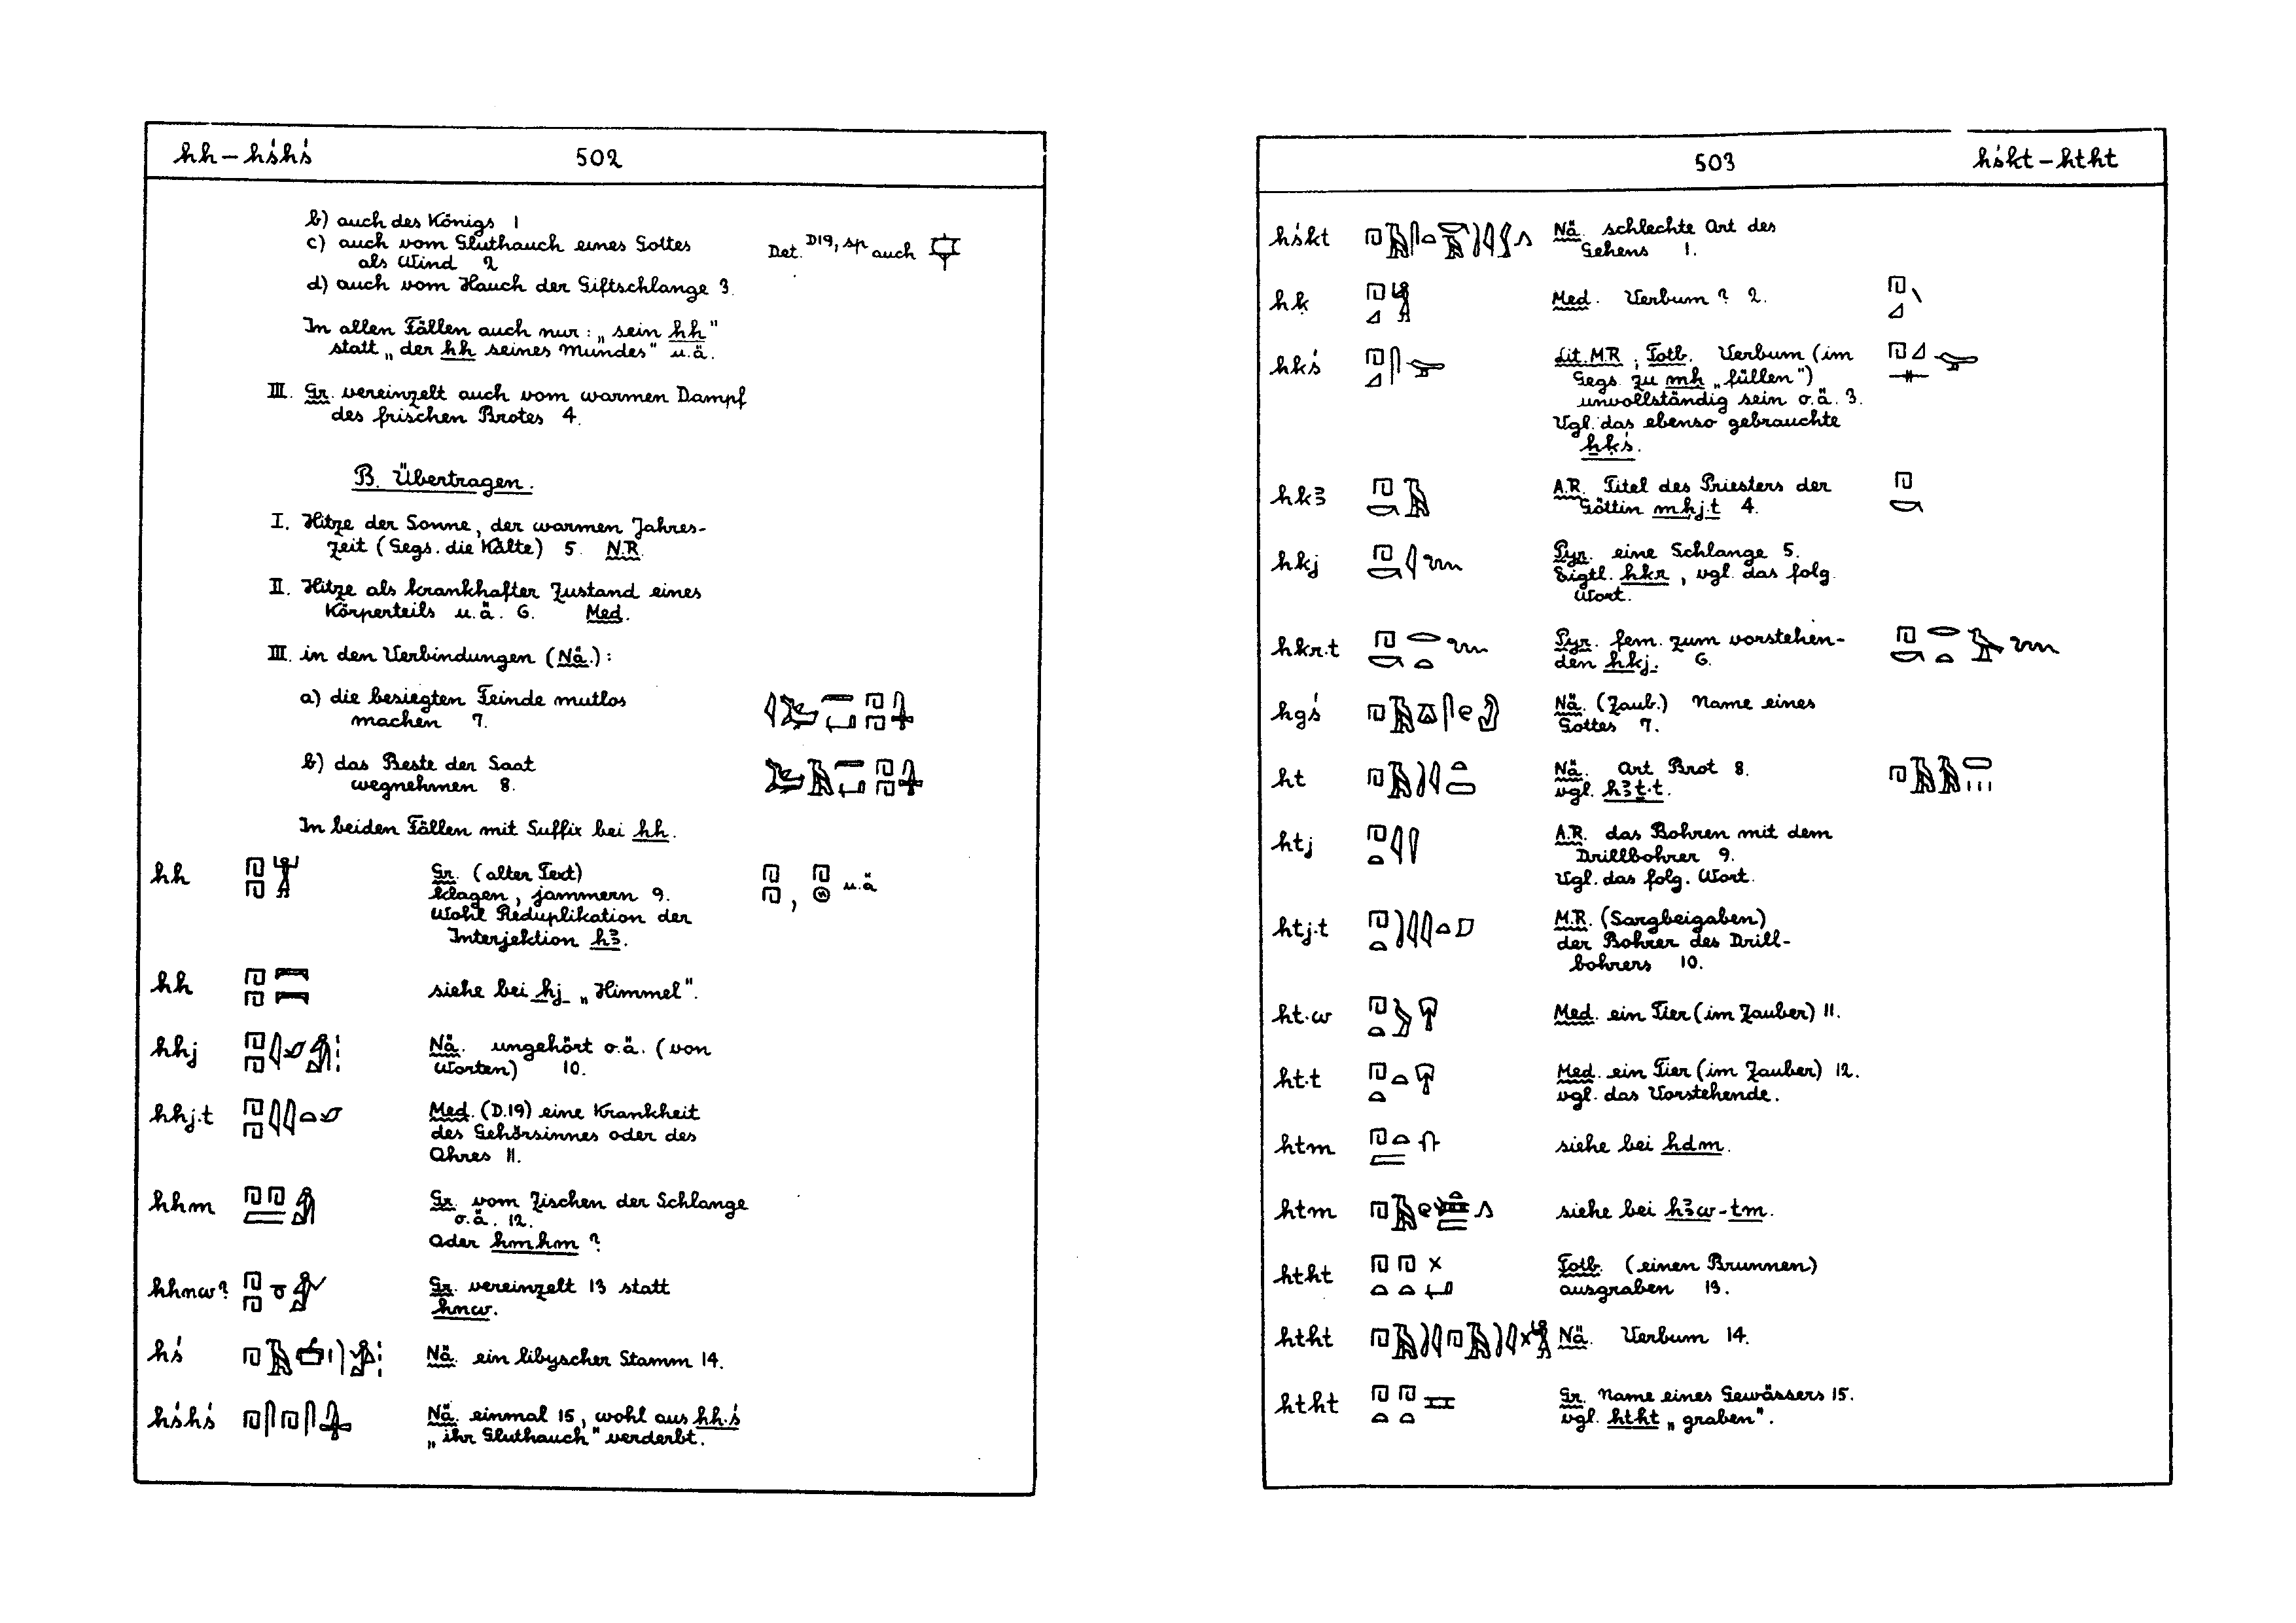 hh – hśhś 502
b) auch des Königs 1
c) auch vom Gluthauch eines Gottes Det. D19, sp auch
als Wind 2
d) auch vom Hauch der Giftschlange 3.
In allen Fällen auch nur: „sein hh"
statt „der hh seines Mundes" u.ä.
III. Gr. vereinzelt auch vom warmen Dampf
des frischen Brotes 4.
B. Übertragen.
I. Hitze der Sonne, der warmen Jahres-
zeit (Gegs. die Kälte) 5. N.R.
II. Hitze als krankhafter Zustand eines
Körperteils u.ä. 6. Med.
III. in den Verbindungen (Nä.):
a) die besiegten Feinde mutlos
machen 7.
b) das Beste der Saat
wegnehmen 8.
In beiden Fällen mit Suffix bei hh.
hh Gr. (alter Text) , u.ä
klagen, jammern 9.
Wohl Reduplikation der
Interjektion hꜣ.
hh siehe bei hj „Himmel".
hhj Nä. ungehört o.ä. (von
Worten) 10.
hhj.t Med. (D.19) eine Krankheit
des Gehörsinnes oder des
Ohres 11.
hhm Gr. vom Zischen der Schlange
o.ä. 12.
Oder hmhm ?
hhnw? Gr. vereinzelt 13 statt
hnw.
hś Nä. ein libyscher Stamm 14.
hśhś Nä. einmal 15, wohl aus hh.ś
„ihr Gluthauch" verderbt.
503 hśkt – htht
hśkt Nä. schlechte Art des
Gehens 1.
hḳ Med. Verbum ? 2.
hḳś Lit. M.R.; Totb. Verbum (im
Gegs. zu mḥ „füllen")
unvollständig sein o.ä. 3.
Vgl. das ebenso gebrauchte
ḥḳś.
hkꜣ A.R. Titel des Priesters der
Göttin mḥj.t 4.
hkj Pyr. eine Schlange 5.
Eigtl. hkr, vgl. das folg.
Wort.
hkr.t Pyr. fem. zum vorstehen-
den hkj. 6.
hgś Nä. (Zaub.) Name eines
Gottes 7.
ht Nä. Art Brot 8.
vgl. hꜣṯ.t.
htj A.R. das Bohren mit dem
Drillbohrer 9.
Vgl. das folg. Wort.
htj.t M.R. (Sargbeigaben)
der Bohrer des Drill-
bohrers 10.
ht.w Med. ein Tier (im Zauber) 11.
ht.t Med. ein Tier (im Zauber) 12.
vgl. das Vorstehende.
htm siehe bei hdm.
htm siehe bei hꜣw-tm.
htht Totb. (einen Brunnen)
ausgraben 13.
htht Nä. Verbum 14.
htht Gr. Name eines Gewässers 15.
vgl. htht „graben".